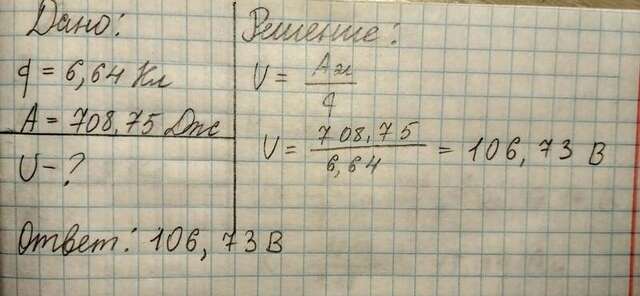 Дано:
q = 6,64 Кл
A = 708,75 Дж
U - ?
Решение:
U = Aэл / q
U = 708,75 / 6,64 = 106,73 В
Ответ: 106,73 В